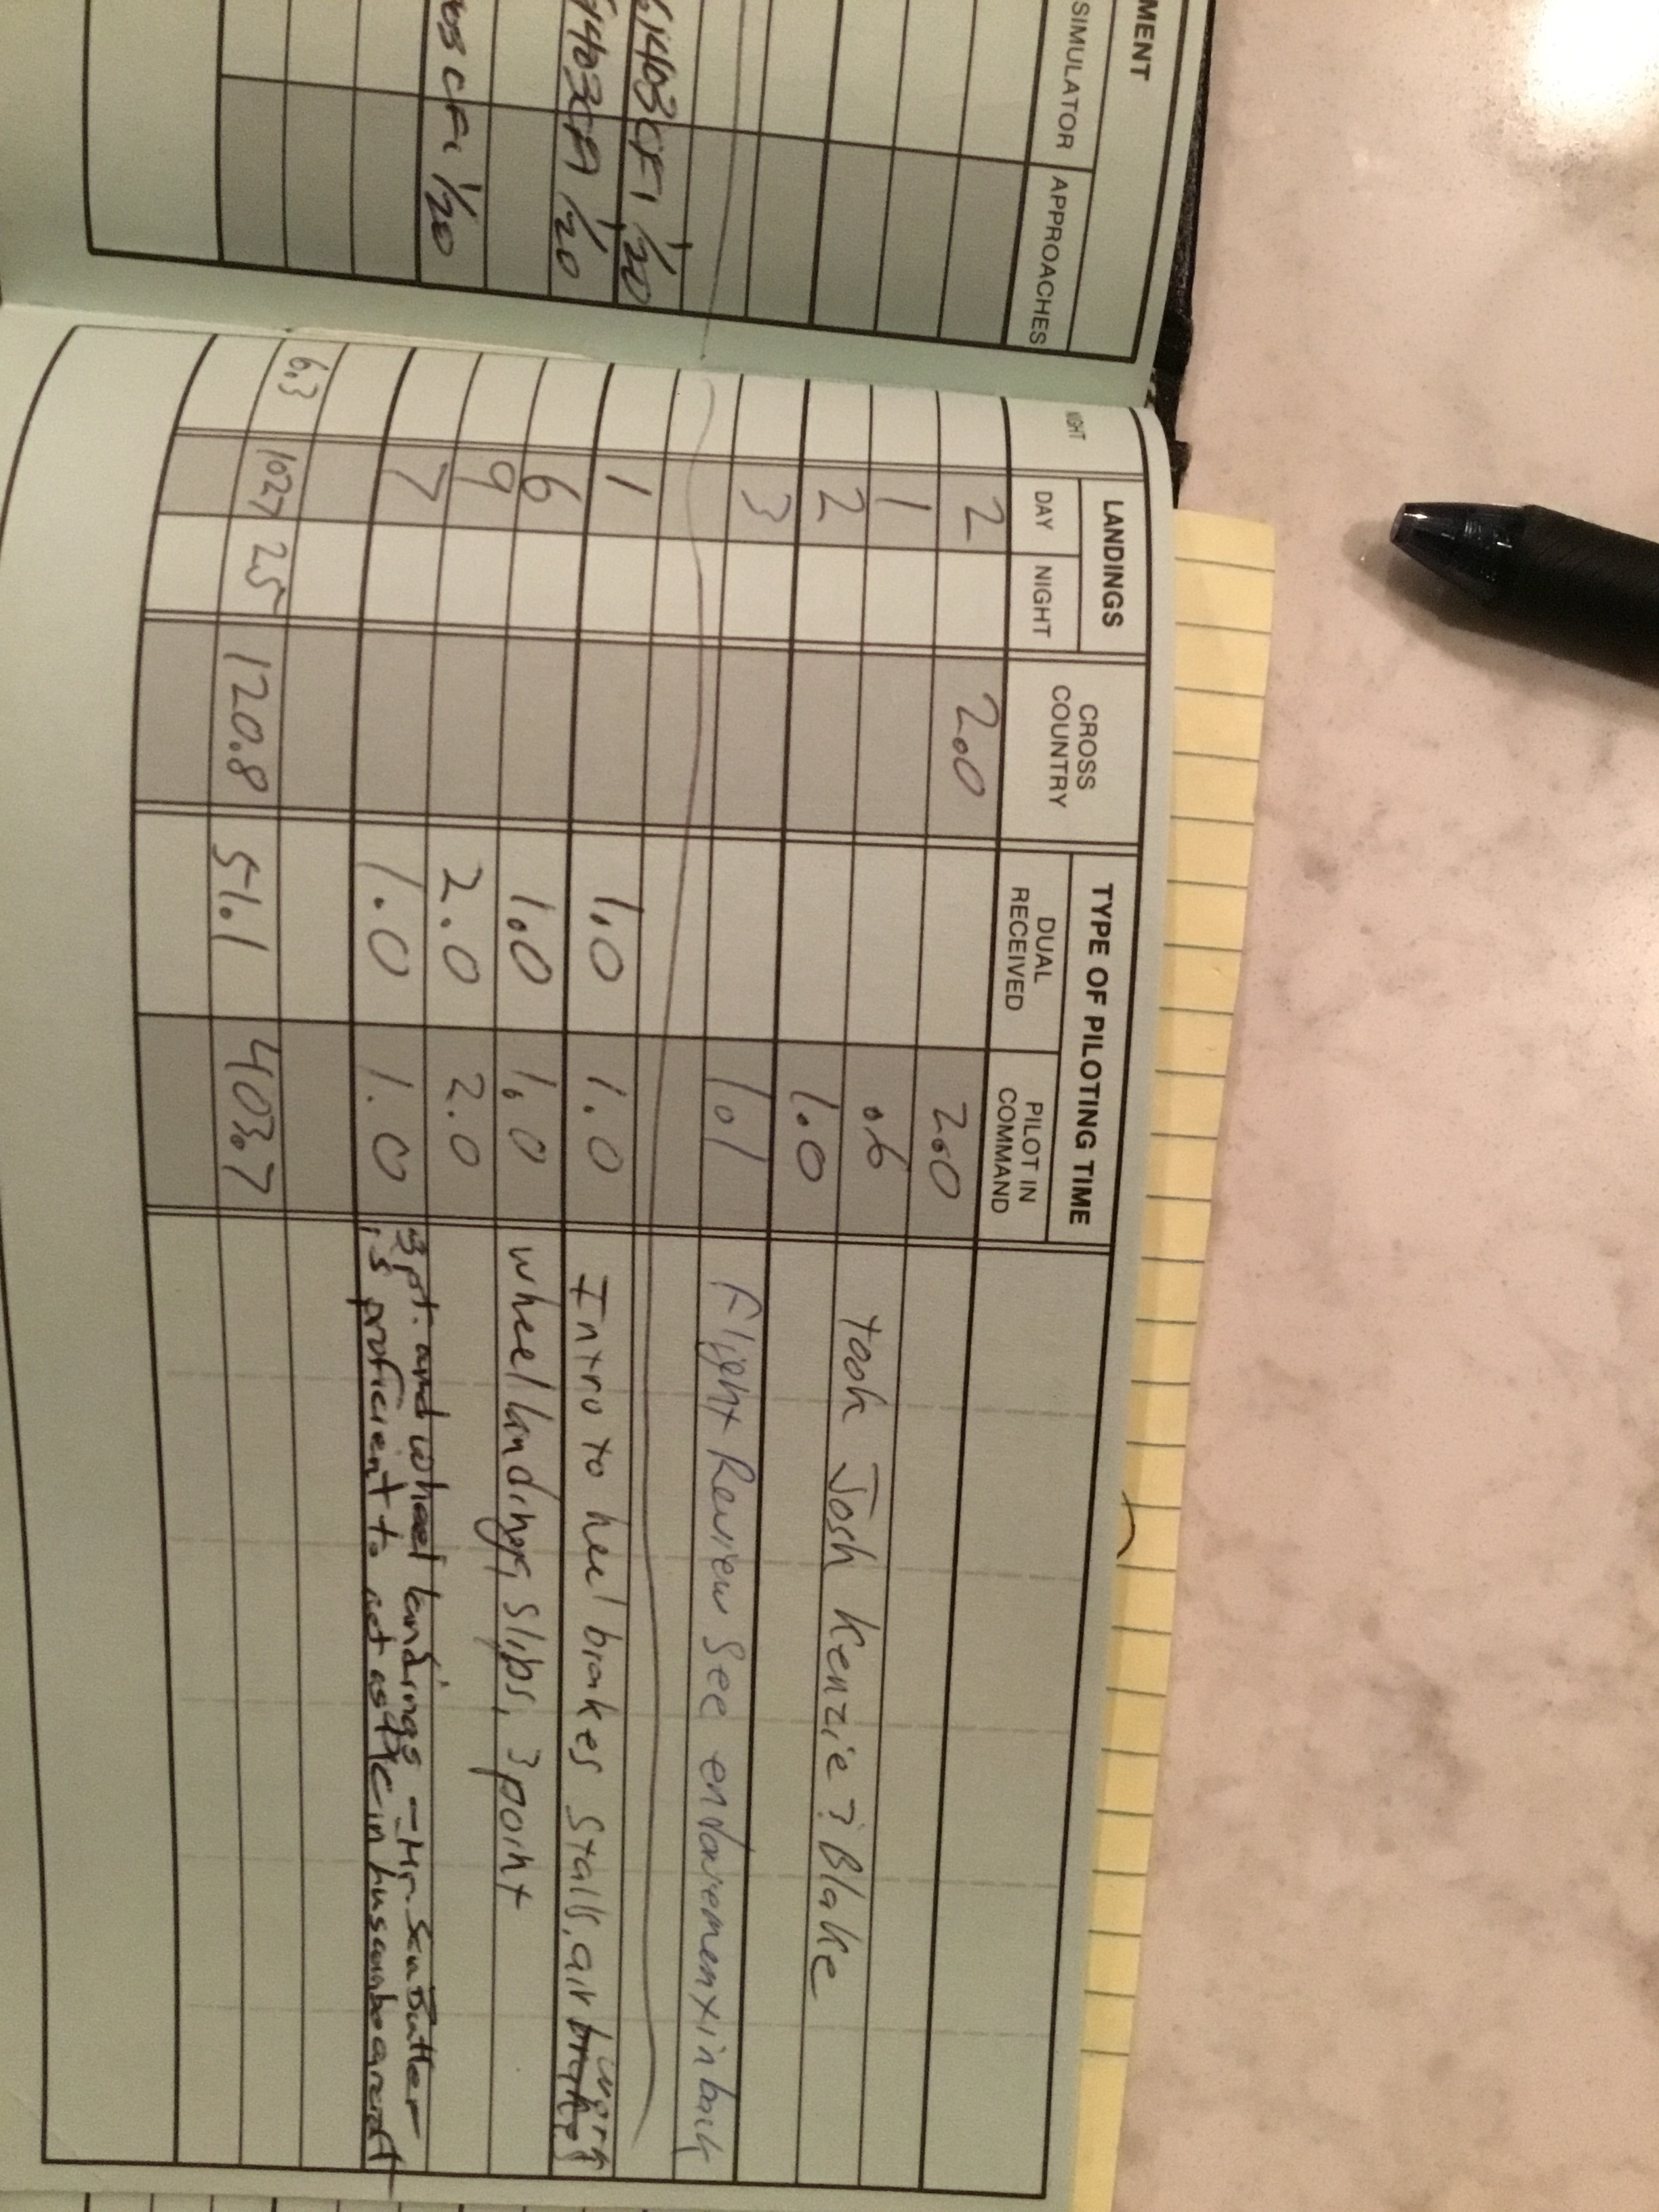 MENT
SIMULATOR APPROACHES
1/20
1/20
03 CFI 1/20
NIGHT
LANDINGS
DAY NIGHT
CROSS COUNTRY
TYPE OF PILOTING TIME
DUAL RECEIVED
PILOT IN COMMAND
2 2.0 2.0
1 .6 took Josh Kenzie ? Blake
2 1.0
3 1.1 Flight Review See endorsement in back
1 1.0 1.0 Intro to heel brakes stalls, air work
6 1.0 1.0 wheel landings, slips, 3 point
9 2.0 2.0
7 1.0 1.0 3 pt. and wheel landings - Mr.
is proficient to act as PIC in
6.3 1027 25 120.8 51.1 403.7